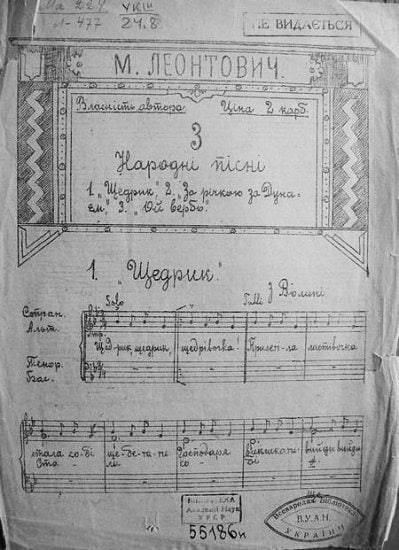 УКШ
Л-477 24.8
НЕ ВИДАЄТЬСЯ
М. ЛЕОНТОВИЧ.
Власність автора Ціна 2 карб.
3
Народні пісні
1. „Щедрик", 2. „За річкою за Дуна-
єм," 3. „Ой вербо".
1. „Щедрик."
Solo Tutti З Волині
Сопран.
Альт.
Щед-рик щедрик, щедрівочка! Прилеті-ла ластівочка
Тенор.
Бас.
стала со-бі ще-бе-та-ти Господаря викликати: вийди вийди
Ста - ла со - бі
БІБЛІОТЕКА
Академії Наук
УРСР
55186н
Всенародна Бібліотека
В.У.А.Н.
УКРАЇНИ